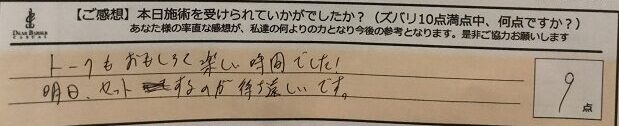 【ご感想】本日施術を受けられていかがでしたか？（ズバリ10点満点中、何点ですか？）
あなた様の率直な感想が、私達の何よりの力となり今後の参考となります。是非ご協力お願いします
DEAR BARBER
トークもおもしろく楽しい時間でした!
明日、セットするのが待ち遠しいです。
9
点